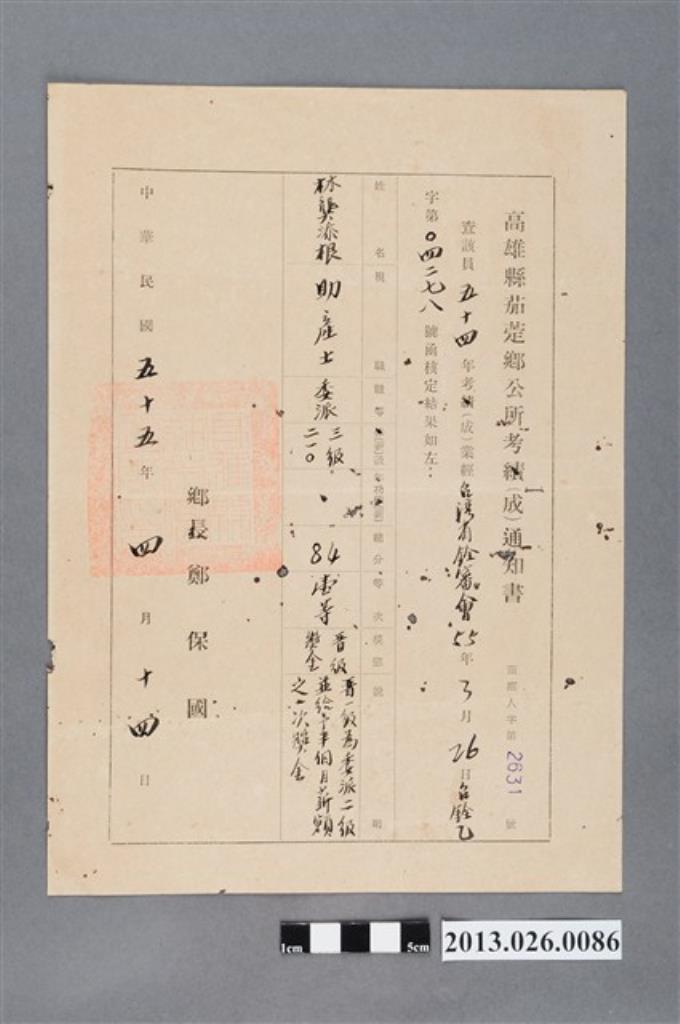 高雄縣茄萣鄉公所考績(成)通知書
人字第2631號
查該員五十四年考績(成)業經台灣省銓審會55年3月26日台銓乙
字第〇四二七八號函核定結果如左：
姓名
現職
職等
總分
等次
獎懲
說明
林龔添根
助產士
委派
三級
二一〇
84
壹等
晉級
獎金
晉一級為委派二級
並給予半個月薪額
之一次獎金
鄉長鄭保國
中華民國五十五年四月十四日
1cm
5cm
2013.026.0086